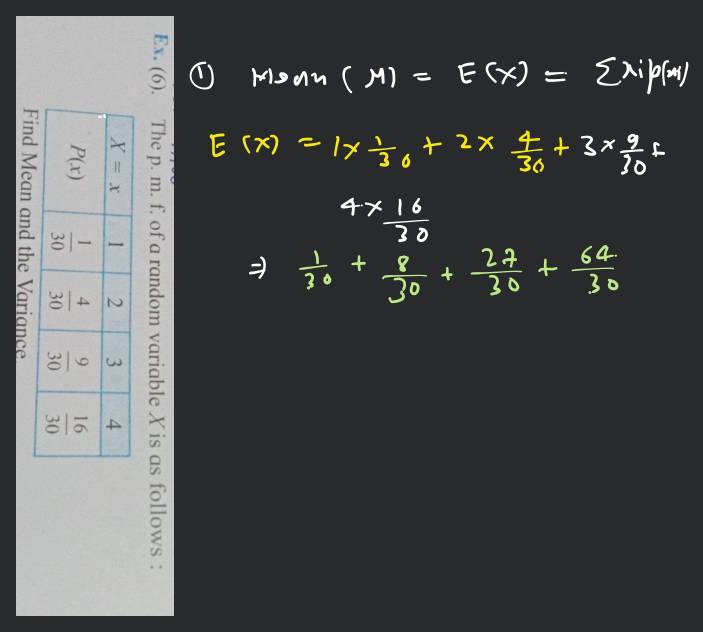 Ex. (6). The p. m. f. of a random variable X is as follows :
X = x 1 2 3 4
P(x) 1/30 4/30 9/30 16/30
Find Mean and the Variance
① Mean (M) = E(X) = Σxip(xi)
E (X) = 1 × 1/30 + 2 × 4/30 + 3 × 9/30 +
4 × 16/30
⇒ 1/30 + 8/30 + 27/30 + 64/30